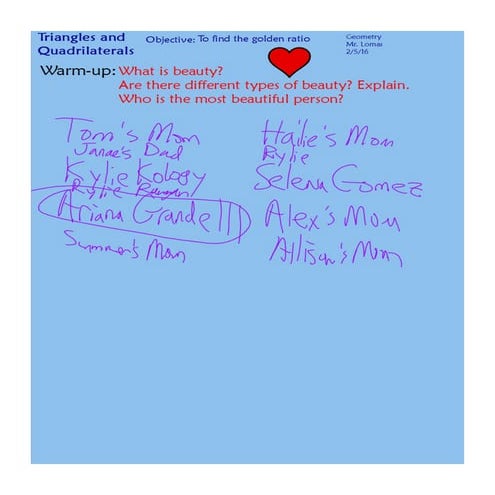 Triangles and
Quadrilaterals
Objective: To find the golden ratio
Geometry
Mr. Lomas
2/5/16
Warm-up: What is beauty?
Are there different types of beauty? Explain.
Who is the most beautiful person?
Tom's Mom
Janae's Dad
Kylie Kology
Rylie
Ariana Grande III
Summer's Mom
Hailie's Mom
Rylie
Selena Gomez
Alex's Mom
Allison's Mom